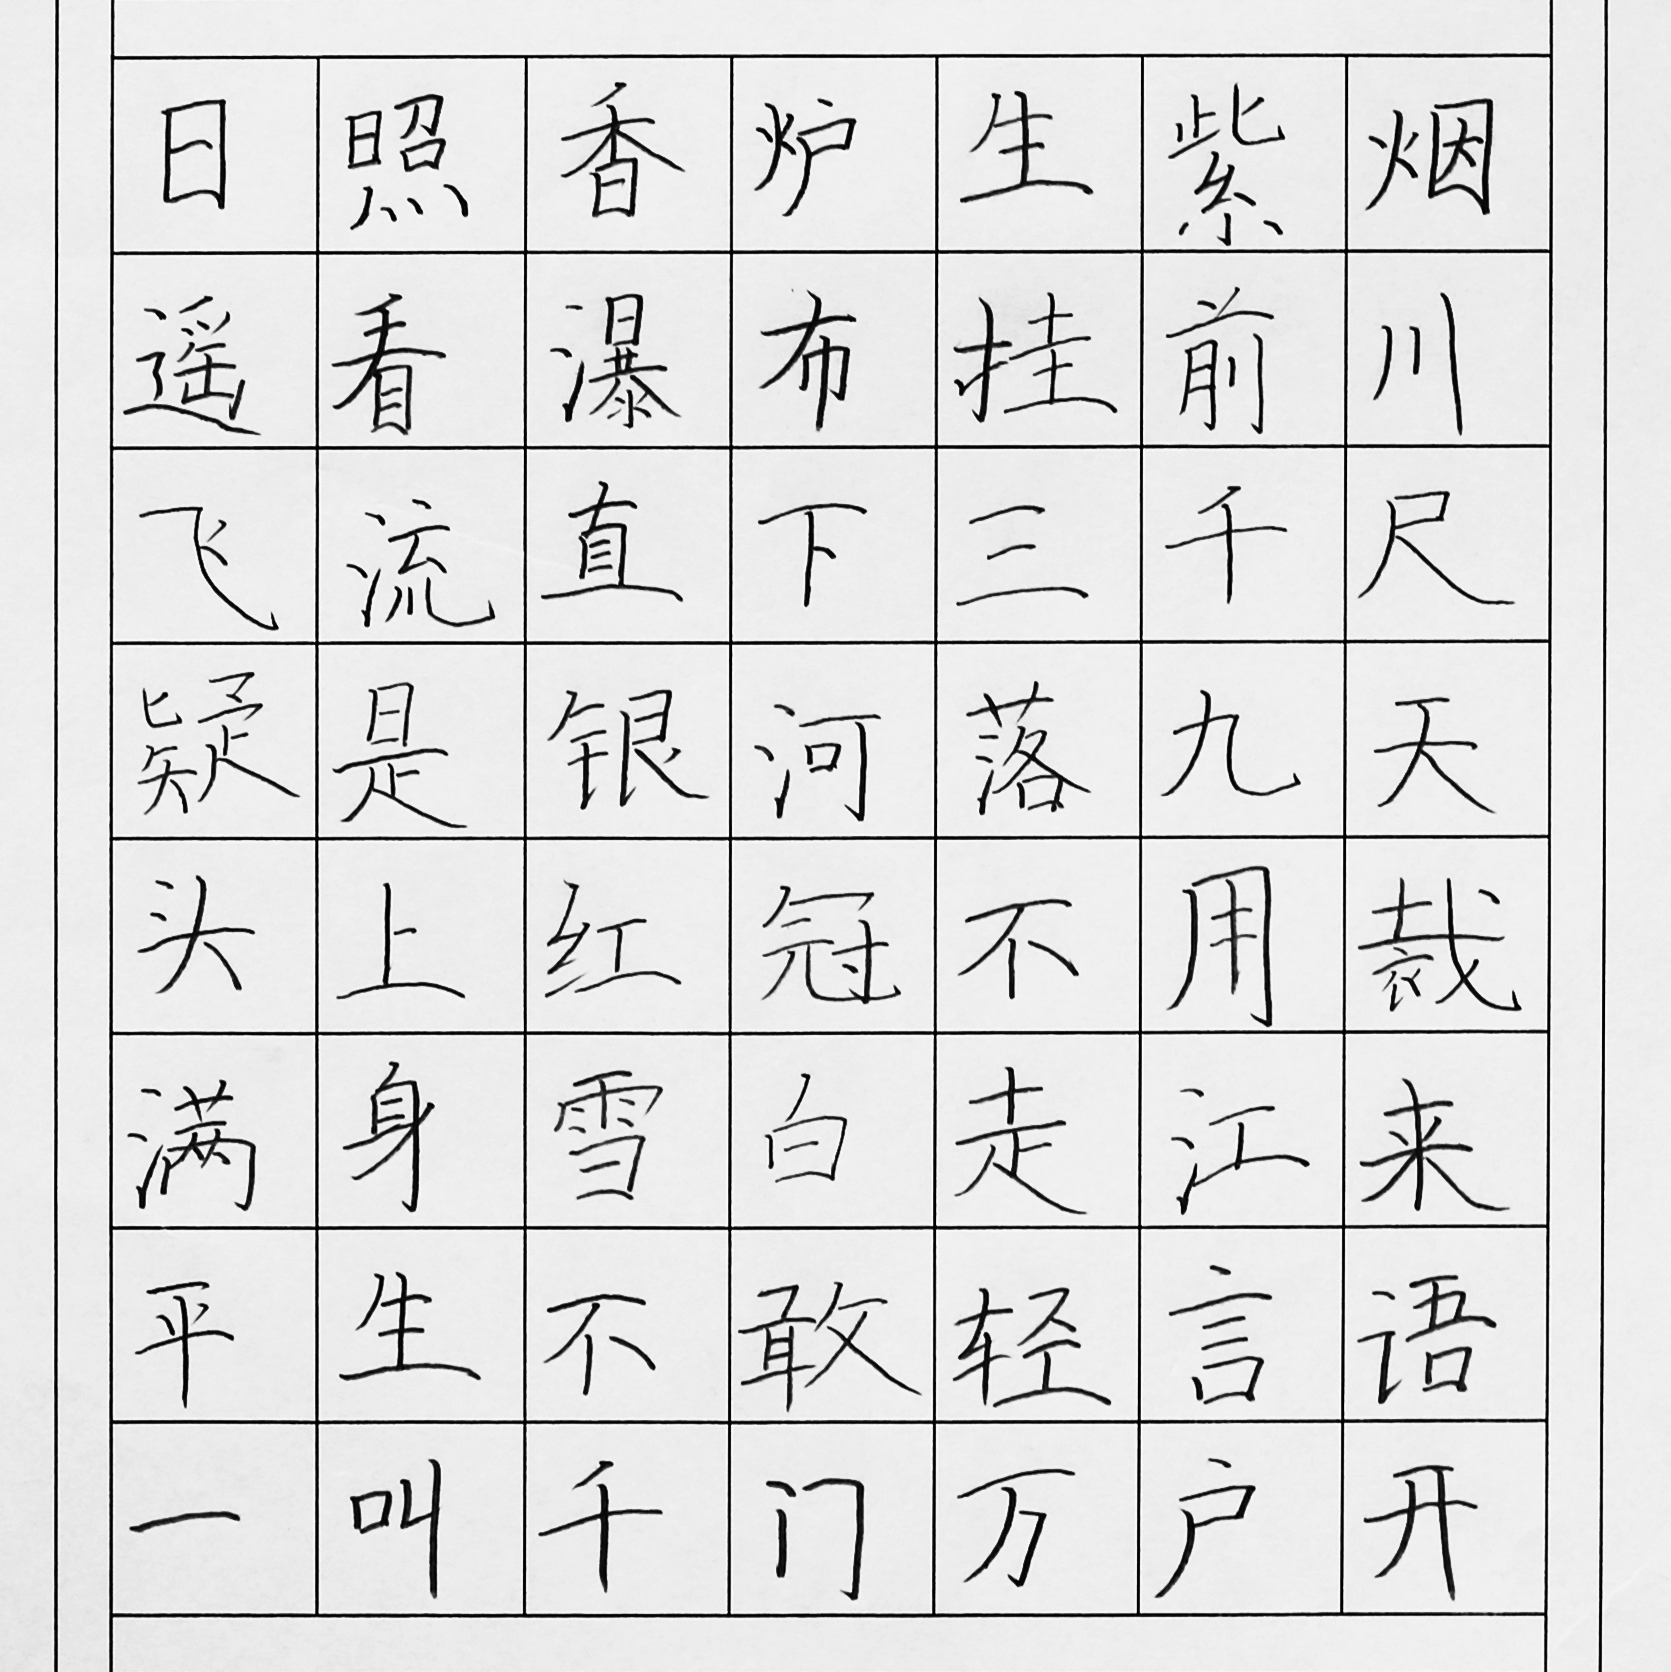 日照香炉生紫烟
遥看瀑布挂前川
飞流直下三千尺
疑是银河落九天
头上红冠不用裁
满身雪白走江来
平生不敢轻言语
一叫千门万户开